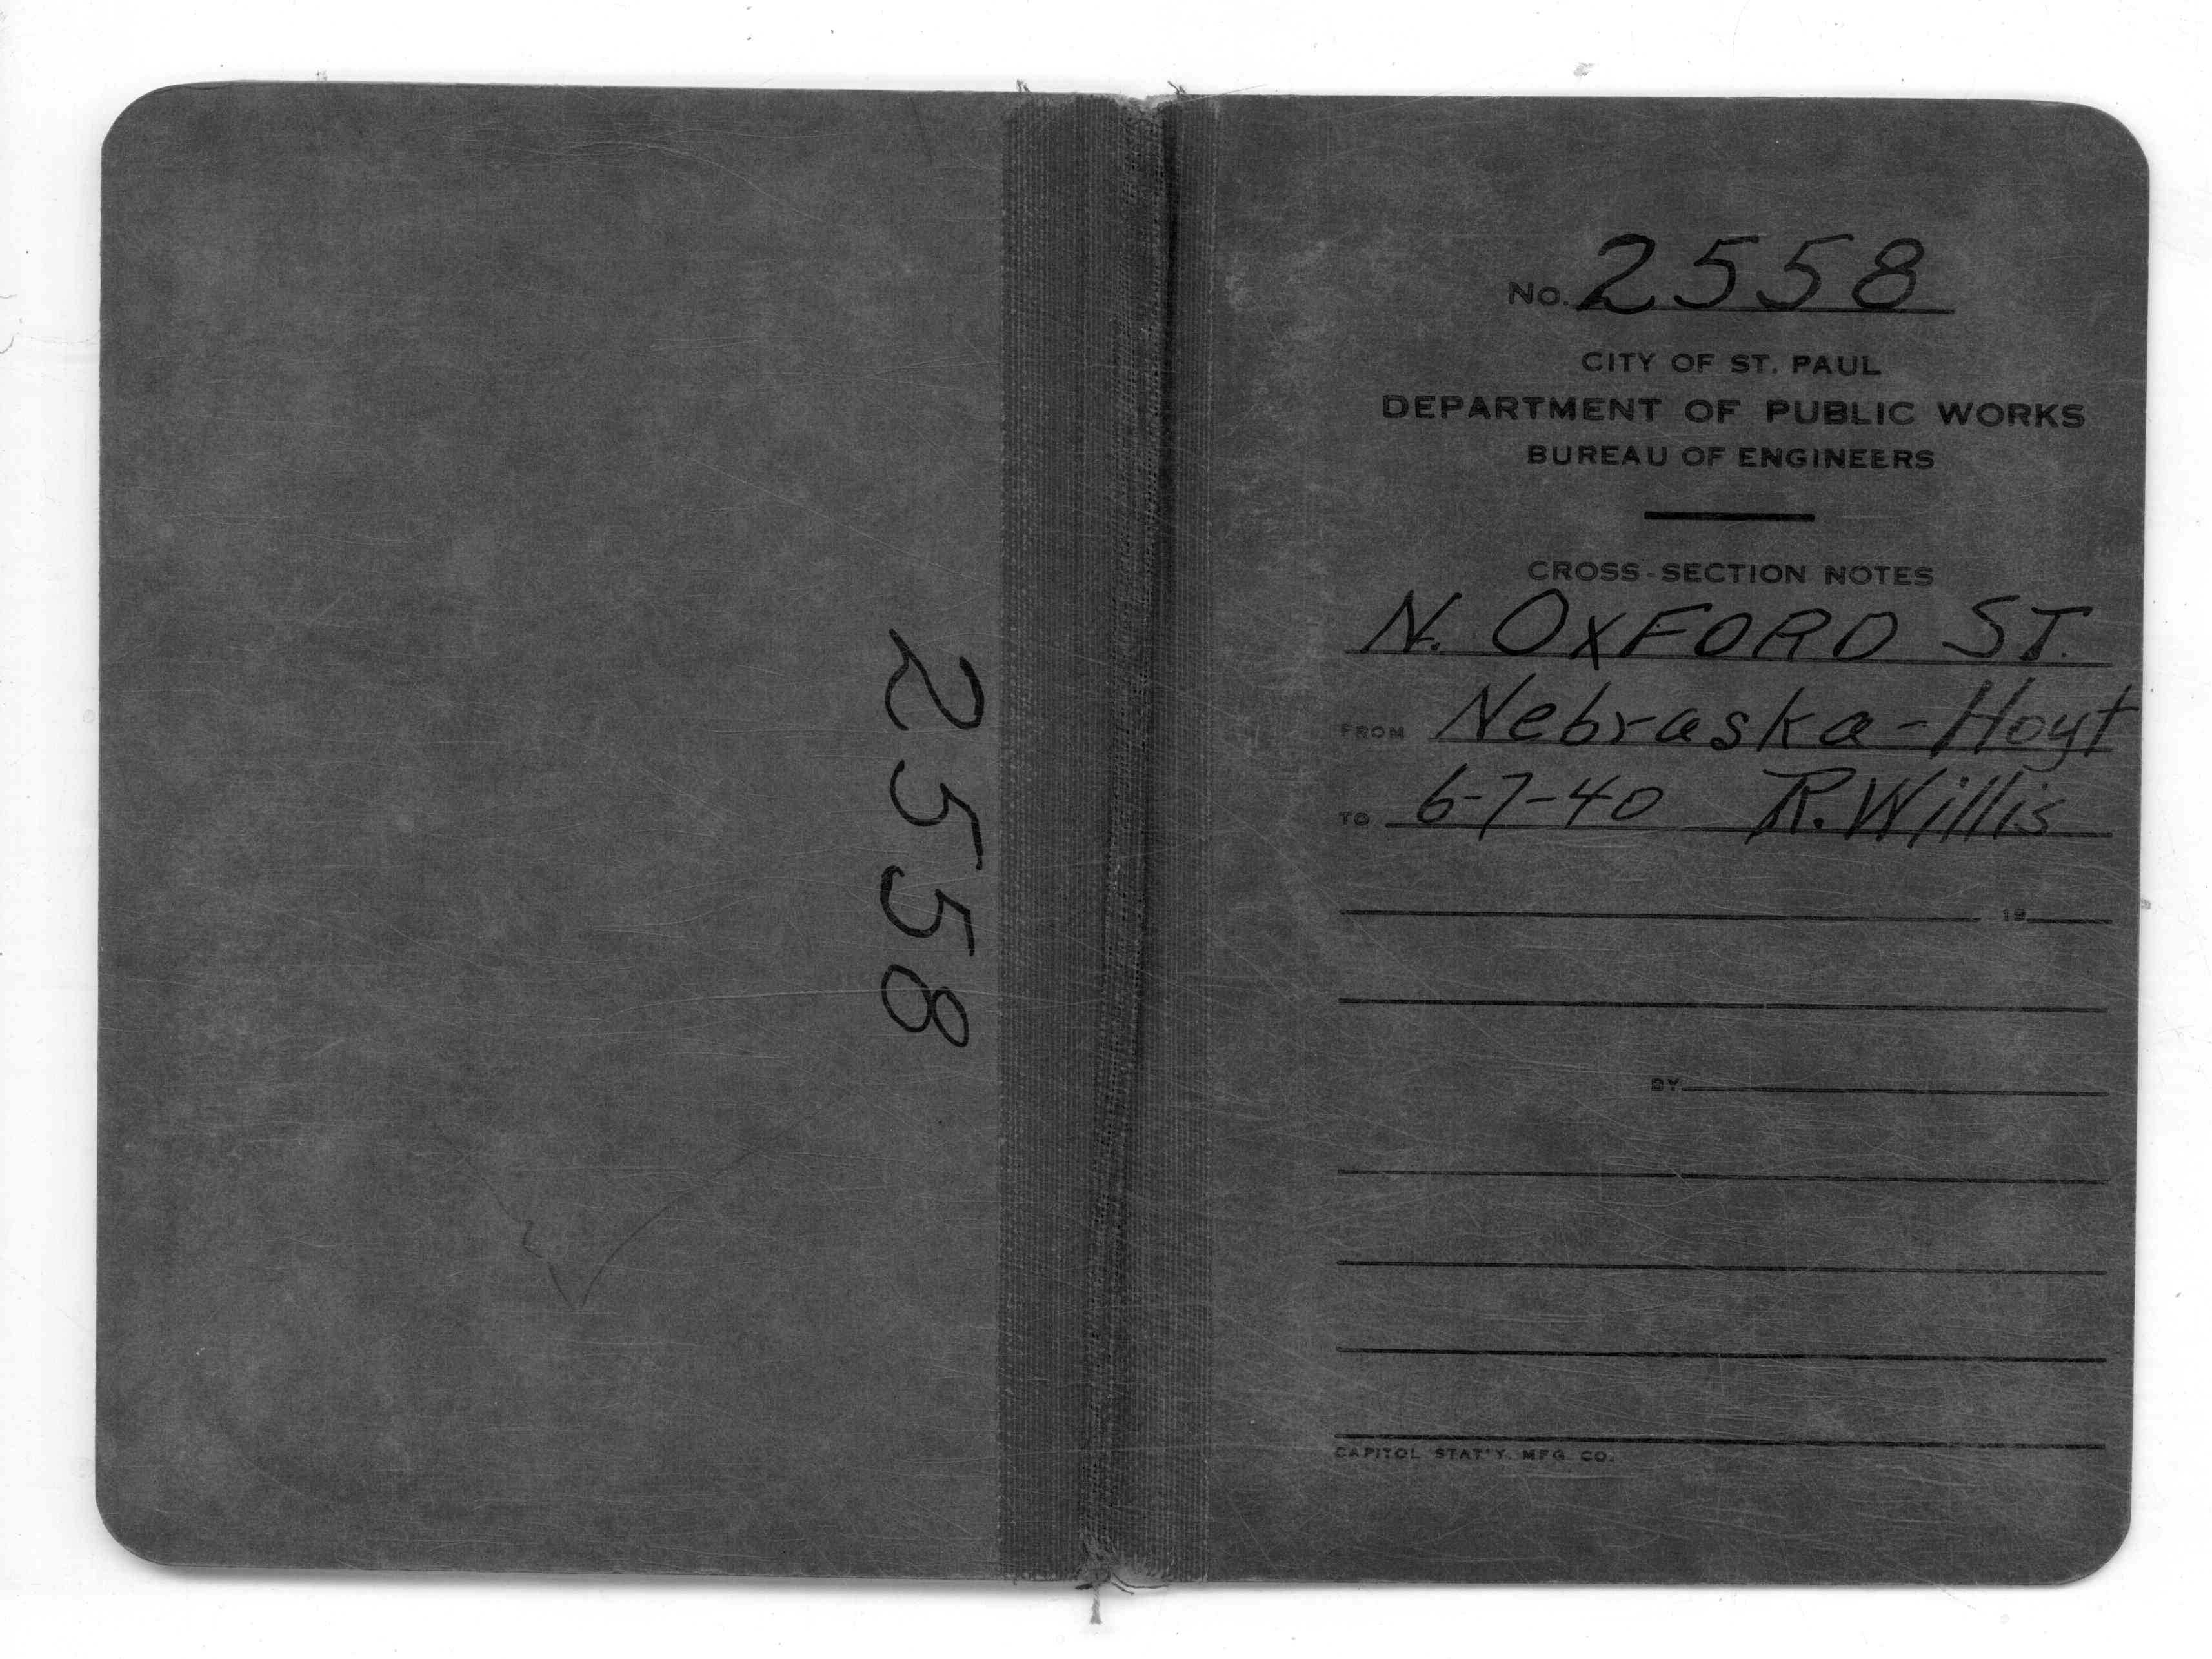 2558
No. 2558
CITY OF ST. PAUL
DEPARTMENT OF PUBLIC WORKS
BUREAU OF ENGINEERS
CROSS-SECTION NOTES
N. OXFORD ST.
FROM Nebraska-Hoyt
TO 6-7-40 R. Willis
19
BY
CAPITOL STAT'Y. MFG. CO.